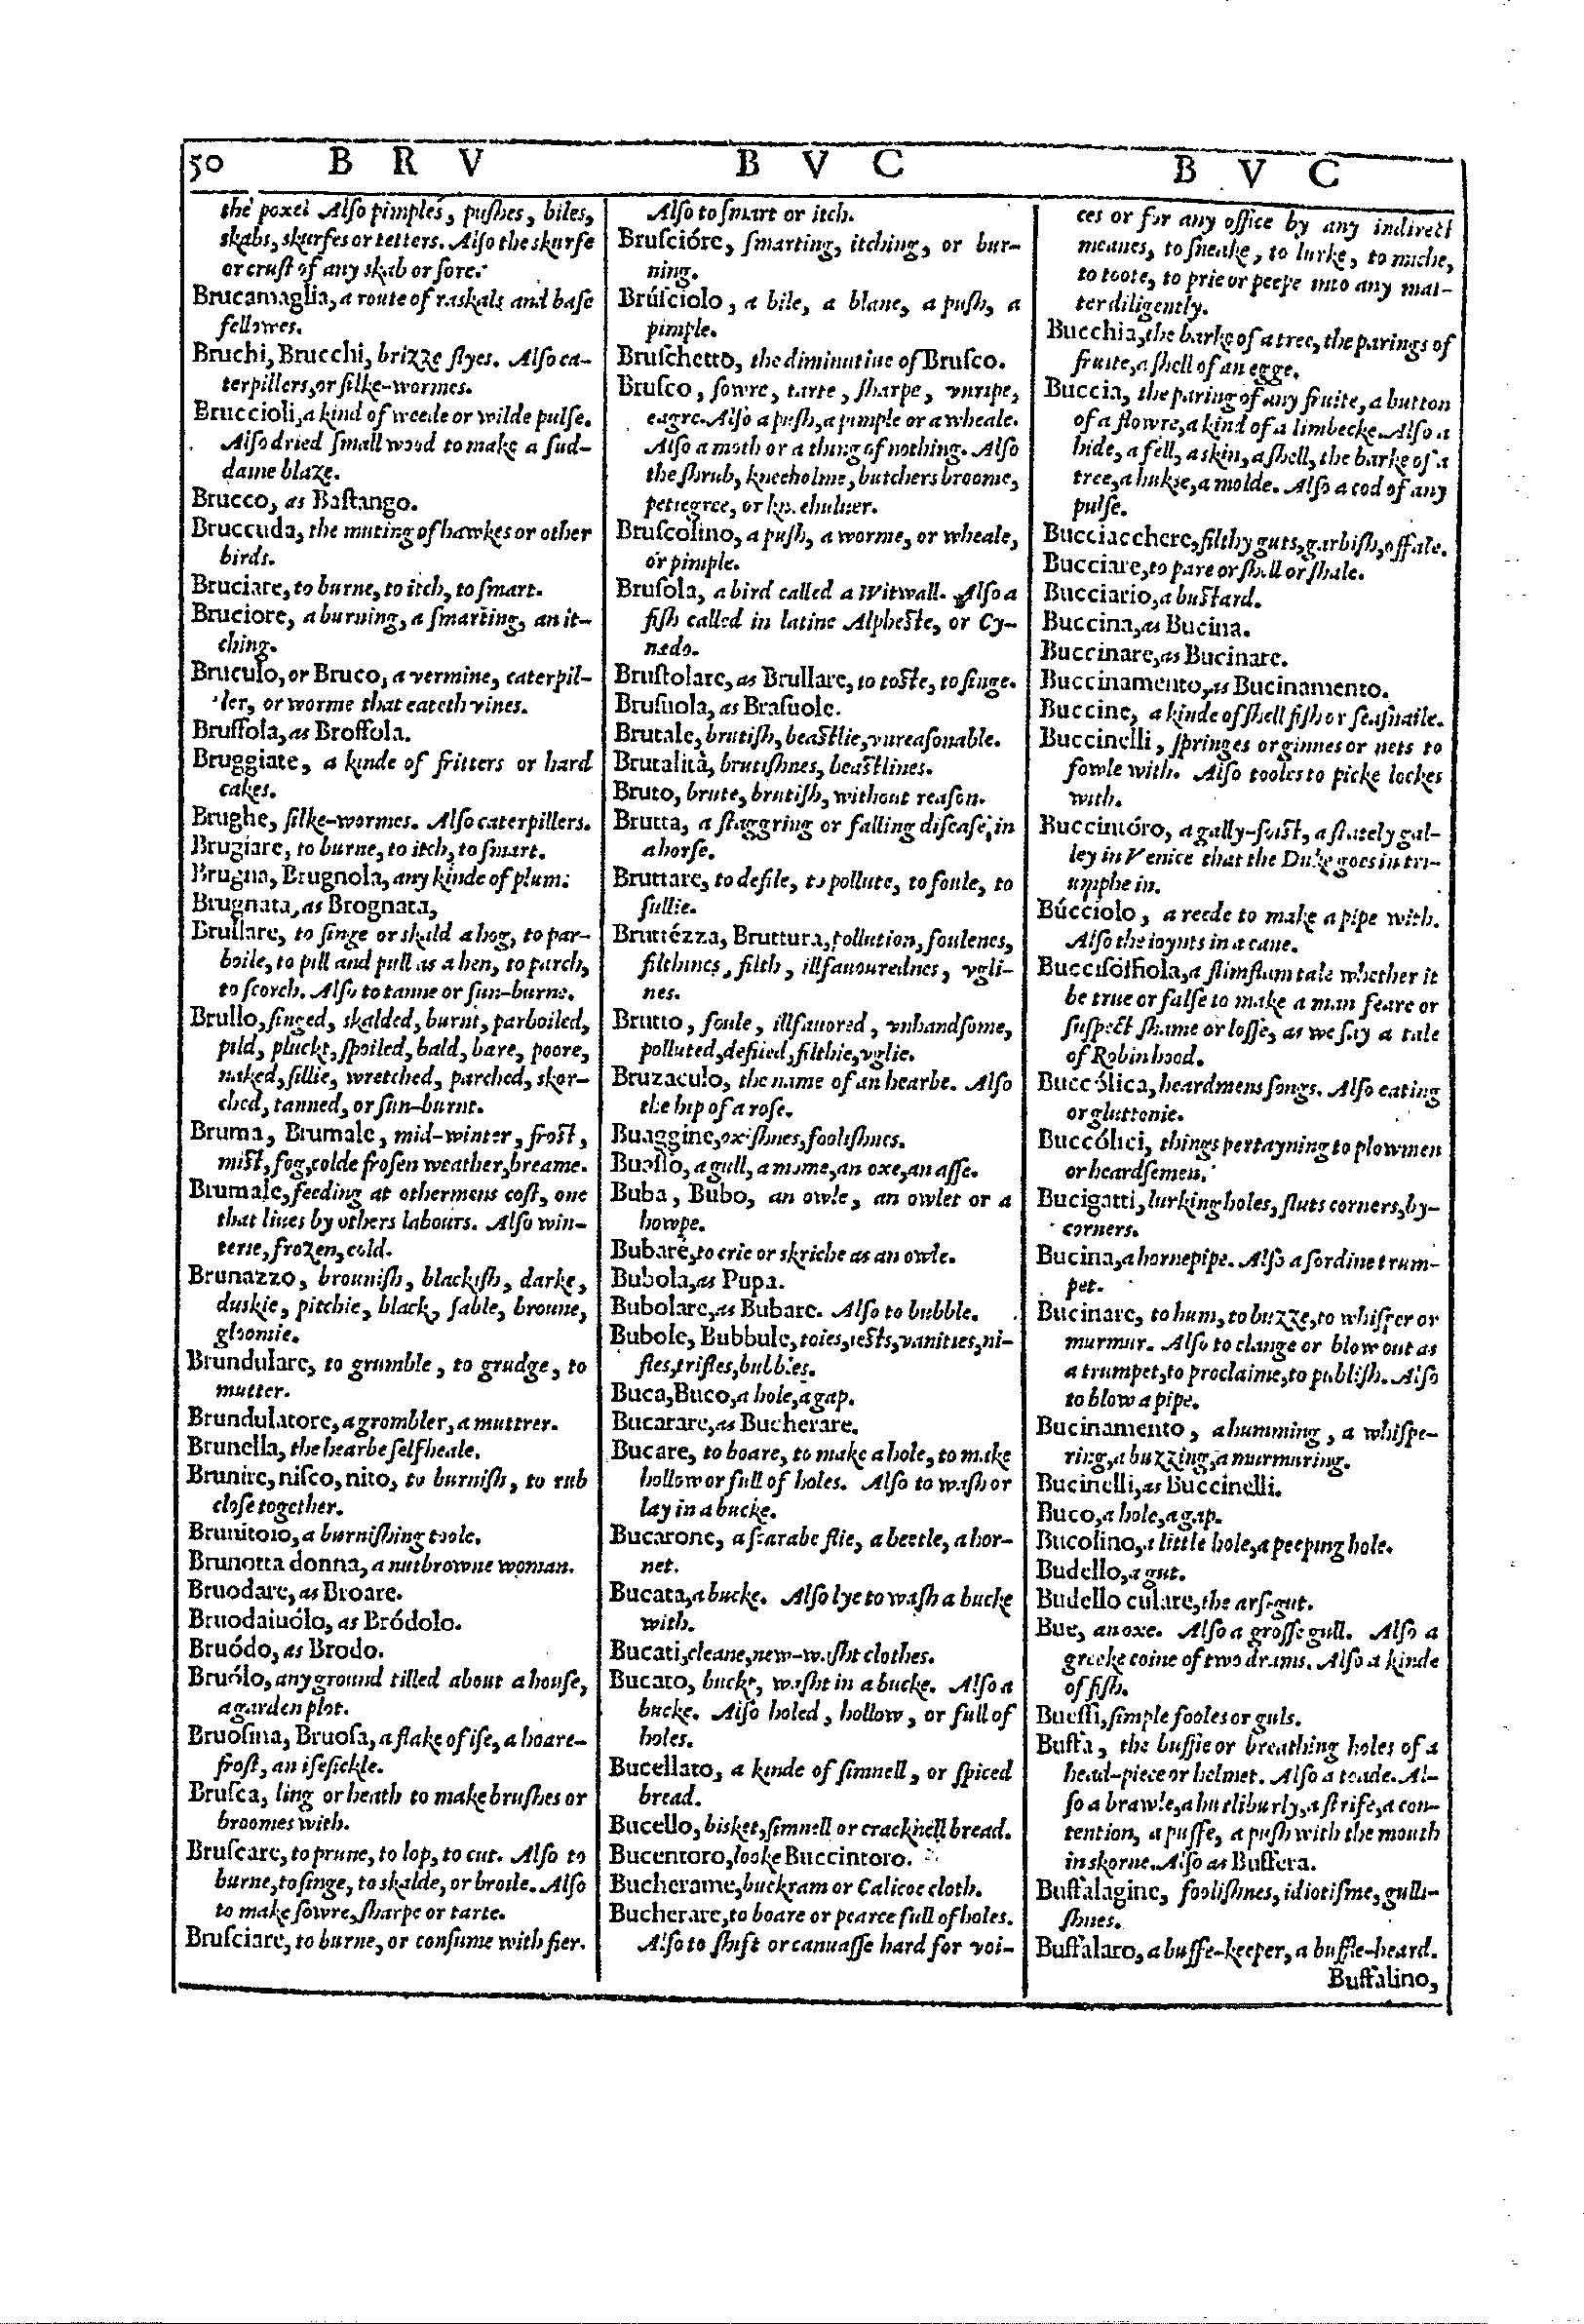 50 B R V
B V C
B V C
the poxe! Alſo pimples, puſhes, biles,
skabs, skurfes or tetters. Alſo the skurfe
or cruſt of any skab or ſore.
Brucamaglia, a route of raskals and baſe
fellowes.
Bruchi, Brucchi, brizze flyes. Alſo ca-
terpillers, or ſilke-wormes.
Bruccioli, a kind of weede or wilde pulſe.
Alſo dried ſmall wood to make a ſud-
daine blaze.
Brucco, as Baſtango.
Bruccuda, the muting of hawkes or other
birds.
Bruciare, to burne, to itch, to ſmart.
Bruciore, a burning, a ſmarting, an it-
ching.
Bruculo, or Bruco, a vermine, caterpil-
ler, or worme that eateth vines.
Bruffola, as Broffola.
Bruggiate, a kinde of fritters or hard
cakes.
Brughe, ſilke-wormes. Alſo caterpillers.
Brugiare, to burne, to itch, to ſmart.
Brugna, Brugnola, any kinde of plum.
Brugnata, as Brognata,
Brullare, to ſinge or skald a hog, to par-
boile, to pill and pull as a hen, to parch,
to ſcorch. Alſo to tanne or ſun-burne.
Brullo, ſinged, skalded, burnt, parboiled,
pild, pluckt, ſpoiled, bald, bare, poore,
naked, ſillie, wretched, parched, skor-
ched, tanned, or ſun-burnt.
Bruma, Brumale, mid-winter, froſt,
miſt, fog, colde froſen weather, breame.
Brumale, feeding at othermens coſt, one
that liues by others labours. Alſo win-
terie, frozen, cold.
Brunazzo, brouniſh, blackiſh, darke,
duskie, pitchie, black, ſable, broune,
gloomie.
Brundulare, to grumble, to grudge, to
mutter.
Brundulatore, a grombler, a muttrer.
Brunella, the hearbe ſelfheale.
Brunire, niſco, nito, to burniſh, to rub
cloſe together.
Brunitoio, a burniſhing toole.
Brunotta donna, a nutbrowne woman.
Bruodare, as Broare.
Bruodaiuólo, as Bródolo.
Bruódo, as Brodo.
Bruólo, any ground tilled about a houſe,
a garden plot.
Bruoſina, Bruoſa, a flake of iſe, a hoare-
froſt, an iſeſickle.
Bruſca, ling or heath to make bruſhes or
broomes with.
Bruſcare, to prune, to lop, to cut. Alſo to
burne, to ſinge, to skalde, or broile. Alſo
to make ſowre, ſharpe or tarte.
Bruſciare, to burne, or conſume with fier.
Alſo to ſmart or itch.
Bruſcióre, ſmarting, itching, or bur-
ning.
Brúſciolo, a bile, a blane, a puſh, a
pimple.
Bruſchetto, the diminutiue of Bruſco.
Bruſco, ſowre, tarte, ſharpe, vnripe,
eagre. Alſo a puſh, a pimple or a wheale.
Alſo a moth or a thing of nothing. Alſo
the ſhrub, kneeholme, butchers broome,
petiegree, or
Bruſcolino, a puſh, a worme, or wheale,
or pimple.
Bruſola, a bird called a Witwall. Alſo a
fiſh called in latine Alpheſte, or Cy-
nedo.
Bruſtolare, as Brullare, to toſte, to ſinge.
Bruſuola, as Braſuole.
Brutale, brutiſh, beaſtlie, vnreaſonable.
Brutalità, brutiſhnes, beaſtlines.
Bruto, brute, brutiſh, without reaſon.
Brutta, a ſtaggring or falling diſeaſe, in
a horſe.
Bruttare, to defile, to pollute, to foule, to
ſullie.
Bruttézza, Bruttura, pollution, foulenes,
filthines, filth, illfauourednes, vgli-
nes.
Brutto, foule, illfauored, vnhandſome,
polluted, defiled, filthie, vglie.
Bruzaculo, the name of an hearbe. Alſo
the hip of a roſe.
Buaggine, oxiſhnes, fooliſhnes.
Buaſſo, a gull, a mome, an oxe, an aſſe.
Buba, Bubo, an owle, an owlet or a
howpe.
Bubare, to crie or skriche as an owle.
Bubola, as Pupa.
Bubolare, as Bubare. Alſo to bubble.
Bubole, Bubbule, toies, ieſts, vanities, ni-
fles, trifles, bubbles.
Buca, Buco, a hole, a gap.
Bucarare, as Bucherare.
Bucare, to boare, to make a hole, to make
hollow or full of holes. Alſo to waſh or
lay in a bucke.
Bucarone, a ſcarabe flie, a beetle, a hor-
net.
Bucata, a bucke. Alſo lye to waſh a bucke
with.
Bucati, cleane, new-waſht clothes.
Bucato, buckt, waſht in a bucke. Alſo a
bucke. Alſo holed, hollow, or full of
holes.
Bucellato, a kinde of ſimnell, or ſpiced
bread.
Bucello, bisket, ſimnell or cracknell bread.
Bucentoro, looke Buccintoro.
Bucherame, buckram or Calicoe cloth.
Bucherare, to boare or pearce full of holes.
Alſo to ſhift or canuaſſe hard for voi-
ces or for any office by any indirect
meanes, to ſneake, to lurke, to miche,
to toote, to prie or peepe into any mat-
ter diligently.
Bucchia, the barke of a tree, the parings of
fruite, a ſhell of an egge.
Buccia, the paring of any fruite, a button
of a flowre, a kind of a limbecke. Alſo a
hide, a fell, a skin, a ſhell, the barke of a
tree, a huske, a molde. Alſo a cod of any
pulſe.
Bucciacchere, filthy guts, garbiſh, offale.
Bucciare, to pare or ſhell or ſhale.
Bucciario, a buſtard.
Buccina, as Bucina.
Buccinare, as Bucinare.
Buccinamento, as Bucinamento.
Buccine, a kinde of ſhell fiſh or ſeaſnaile.
Buccinelli, ſpringes or ginnes or nets to
fowle with. Alſo tooles to picke lockes
with.
Buccintóro, a gally-foiſt, a ſtately gal-
ley in Venice that the Duke goes in tri-
umphe in.
Búcciolo, a reede to make a pipe with.
Alſo the ioynts in a cane.
Bucciſóffiola, a flimflam tale whether it
be true or falſe to make a man feare or
ſuſpect ſhame or loſſe, as we ſay a tale
of Robin hood.
Buccólica, heardmens ſongs. Alſo eating
or gluttonie.
Buccólici, things pertayning to plowmen
or heardſemen.
Bucigatti, lurking holes, ſluts corners, by-
corners.
Bucina, a hornepipe. Alſo a ſordine trum-
pet.
Bucinare, to hum, to buzze, to whiſper or
murmur. Alſo to clange or blow out as
a trumpet, to proclaime, to publiſh. Alſo
to blow a pipe.
Bucinamento, a humming, a whiſpe-
ring, a buzzing, a murmuring.
Bucinelli, as Buccinelli.
Buco, a hole, a gap.
Bucolino, a little hole, a peeping hole.
Budello, a gut.
Budello culare, the arſegut.
Bue, an oxe. Alſo a groſſe gull. Alſo a
greeke coine of two drams. Alſo a kinde
of fiſh.
Bueſſi, ſimple fooles or guls.
Buffa, the buffie or breathing holes of a
head-piece or helmet. Alſo a toade. Al-
ſo a brawle, a hurliburly, a ſtrife, a con-
tention, a puffe, a puſh with the mouth
in skorne. Alſo as Buffera.
Buffalagine, fooliſhnes, idiotiſme, gulli-
ſhnes.
Buffalaro, a buffe-keeper, a buffle-heard.
Buffalino,